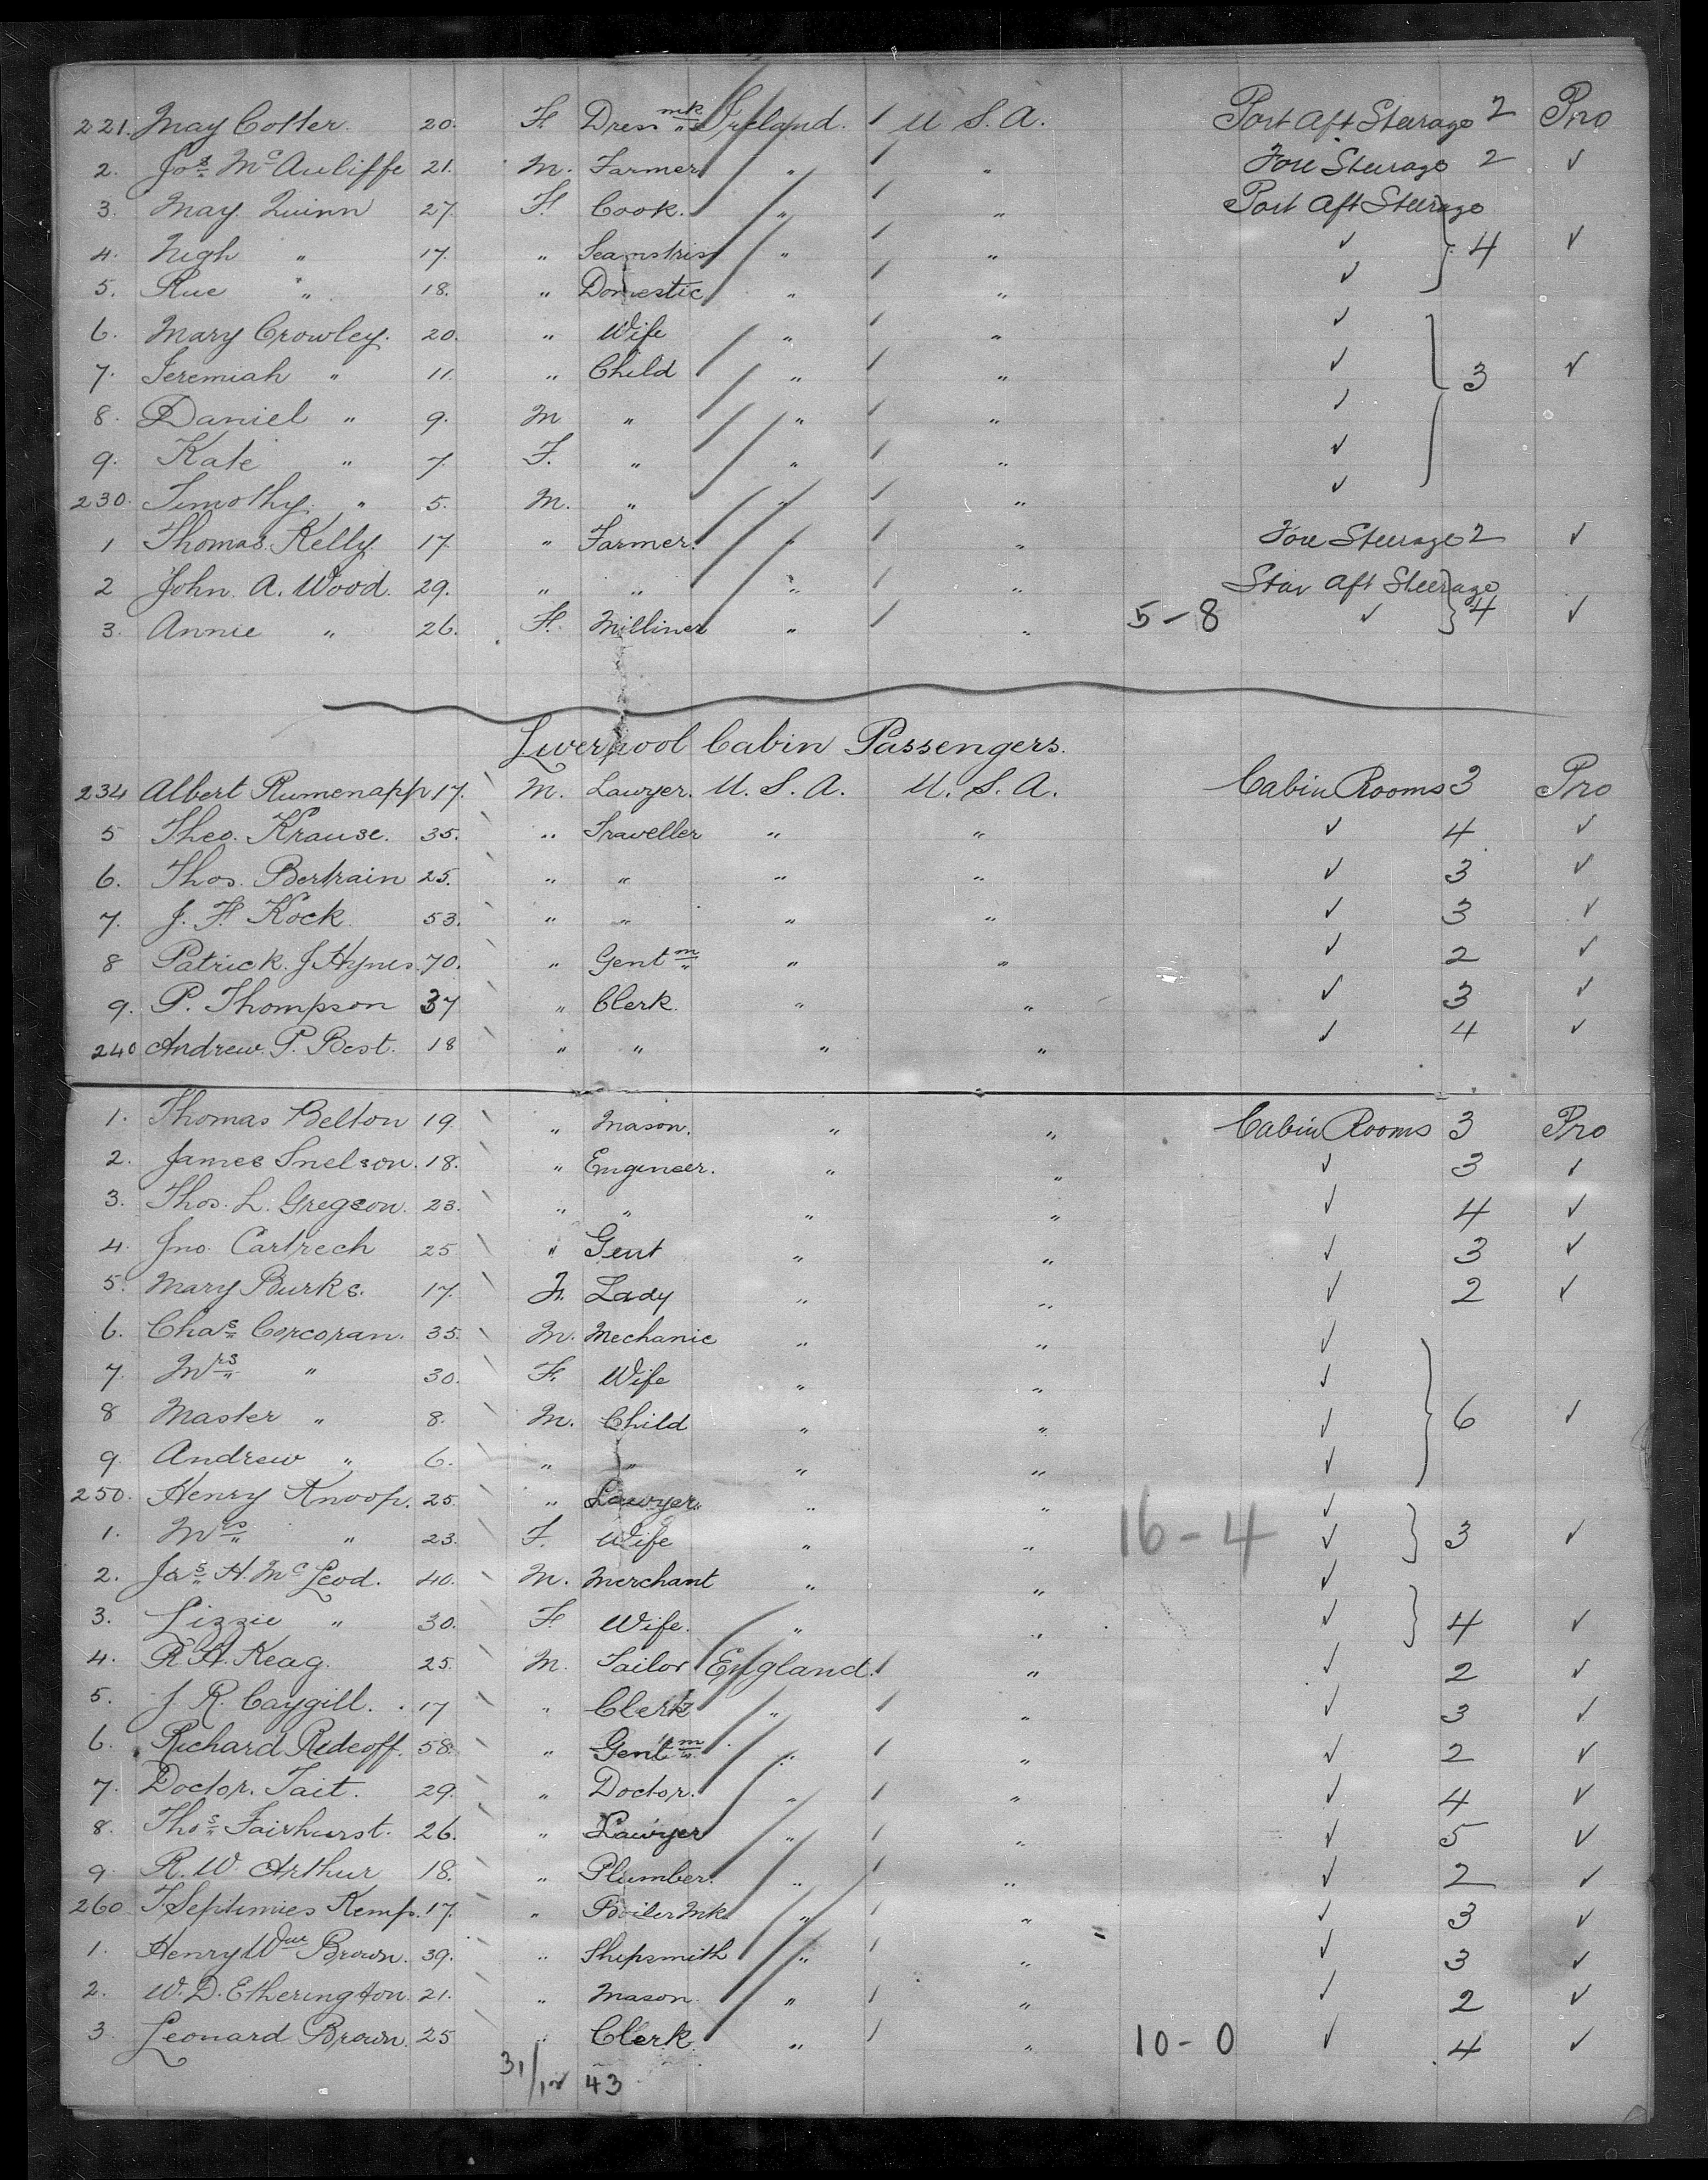 221. May Cotter. 20. F. Dress mk. Ireland. / U S. A. Port Aft Steerage 2 Pro
2. Jos. McAuliffe 21. M. Farmer " / " Fore Steerage 2 ✓
3. May Quinn 27. F. Cook. " / " Port Aft Steerage
4. Nigh " 17. " Seamstriss " / " ✓ } 4 ✓
5. Rue " 18. " Domestic " / " ✓
6. Mary Crowley. 20. " Wife " / " ✓
7. Jeremiah " 11. " Child " / " ✓ } 3 ✓
8. Daniel " 9. M " " / " ✓
9. Kate " 7. F. " " / " ✓
230. Timothy " 5. M. " " / " ✓
1 Thomas Kelly 17. " Farmer. " / " Fore Steerage 2 ✓
2 John A. Wood. 29. " " " / " Star Aft Steerage
3. Annie " 26. F. Milliner " / " 5-8 ✓ } 4 ✓
Liverpool Cabin Passengers.
234 Albert Rumenapp 17. M. Lawyer. U. S. A. U. S. A. Cabin Rooms 3 Pro
5 Theo. Krause. 35. " Traveller " " ✓ 4 ✓
6. Thos. Bertrain 25. " " " " ✓ 3 ✓
7. J. F. Kock 53. " " " " ✓ 3 ✓
8 Patrick. J Hynes. 70. " Gentm " " ✓ 2 ✓
9. P. Thompson 37 " Clerk. " " ✓ 3 ✓
240 Andrew. P. Best. 18 " " " " ✓ 4 ✓
1. Thomas Belton 19. " Mason. " " Cabin Rooms 3 Pro
2. James Snelson. 18. " Engineer. " " ✓ 3 ✓
3. Thos. L. Gregson. 23. " " " " ✓ 4 ✓
4. Jno. Cartrech 25 " Gent " " ✓ 3 ✓
5. Mary Burke. 17. F. Lady " " ✓ 2 ✓
6. Chas. Corcoran. 35. M. Mechanic " " ✓
7. Mrs " 30. F. Wife " " ✓
8 Master " 8. M. Child " " ✓ } 6 ✓
9. Andrew " 6. " " " " ✓
250. Henry Knoop. 25. " Lawyer. " " ✓
1. Mrs " 23. F. Wife " " 16-4 ✓ } 3 ✓
2. Jas. H. McLeod. 40. M. Merchant " " ✓
3. Lizzie " 30. F. Wife. " " ✓ } 4 ✓
4. R. H. Keag. 25. M. Tailor England. / " ✓ 2 ✓
5. J. R. Caygill. 17 " Clerk " / " ✓ 3 ✓
6. Richard Rideoff. 58. " Gentm " / " ✓ 2 ✓
7. Doctor. Tait. 29. " Doctor. " / " ✓ 4 ✓
8. Thos. Fairhurst. 26. " Lawyer " / " ✓ 5 ✓
9. R. W. Arthur 18. " Plumber. " / " ✓ 2 ✓
260 T Septimies Kemp. 17. " Boiler Mk. " / " ✓ 3 ✓
1. Henry Wm Brown. 39. " Shipsmith " / " ✓ 3 ✓
2. W. D. Etherington. 21. " Mason. " / " ✓ 2 ✓
3. Leonard Brown. 25 " Clerk. " / " 10-0 ✓ 4 ✓
31/12 43